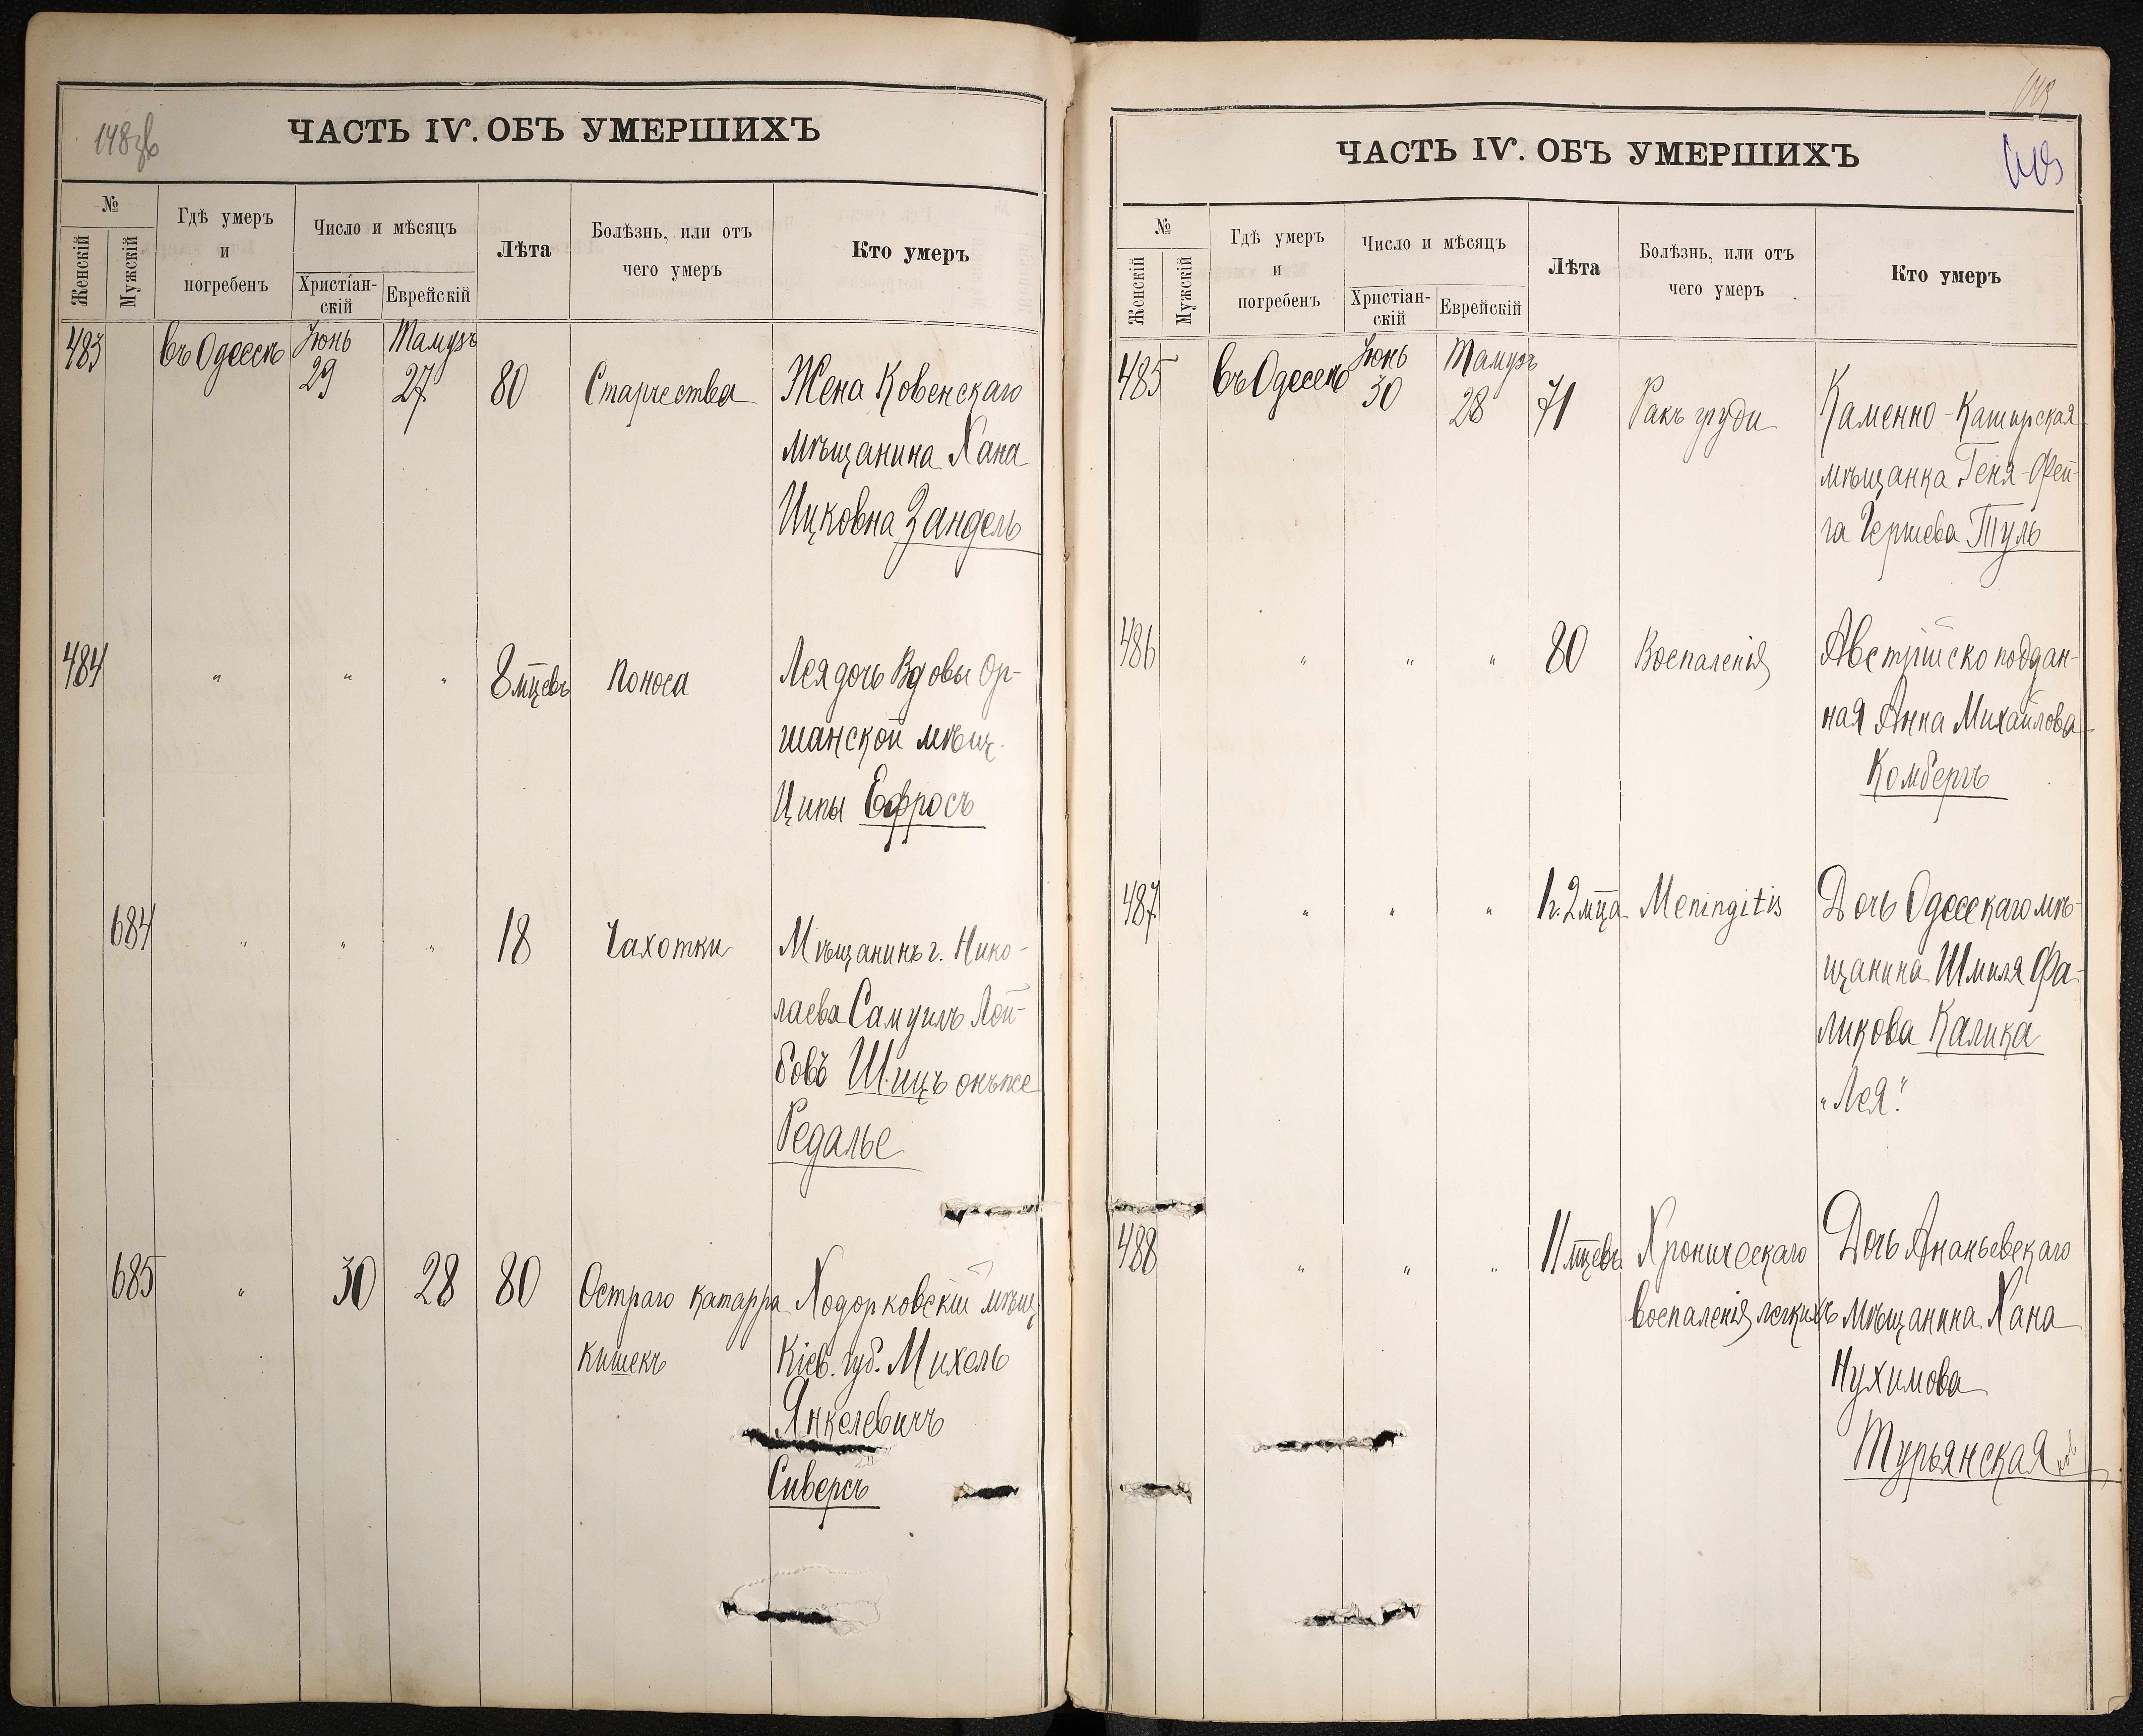 148 зв
ЧАСТЬ IV. ОБЪ УМЕРШИХЪ
№
Женскій
Мужскій
Гдѣ умеръ
и
погребенъ
Число и мѣсяцъ
Христіан-
скій
Еврейскій
Лѣта
Болѣзнь, или отъ
чего умеръ
Кто умеръ
483 въ Одессѣ Іюнь 29 Тамузъ 27 80 Старчества Жена Ковенскаго
мѣщанина Хана
Ицковна Зандель
484 " " " 8 мцевъ Поноса Лея дочь Вдовы Ор-
шанской мѣщ.
Ципы Ефросъ
684 " " " 18 Чахотки Мѣщанинъ г. Нико-
лаева Самуилъ Лей-
бовъ Шицъ онъ же
Редалье
685 " 30 28 80 Остраго катарра Ходорковскій мѣщ.
кишекъ Кіев. губ. Михель
Янкелевичъ
Сиверсъ
ЧАСТЬ IV. ОБЪ УМЕРШИХЪ
№
Женскій
Мужскій
Гдѣ умеръ
и
погребенъ
Число и мѣсяцъ
Христіан-
скій
Еврейскій
Лѣта
Болѣзнь, или отъ
чего умеръ
Кто умеръ
485 въ Одессѣ Іюнь 30 Тамузъ 28 71 Ракъ груди Каменно-Каширская
мѣщанка Геня-Фей-
га Гершева Туль
486 " " " 80 Воспаленія Австрійско поддан-
ная Анна Михайлова
Комбергъ
487 " " " 1 г. 2 мца Meningitis Дочь Одесскаго мѣ-
щанина Шмиля Фа-
ликова Калика
"Лея".
488 " " " 11 мцевъ Хроническаго Дочь Ананьевскаго
воспаленія легкихъ мѣщанина Хана
Нухимова
Турьянская